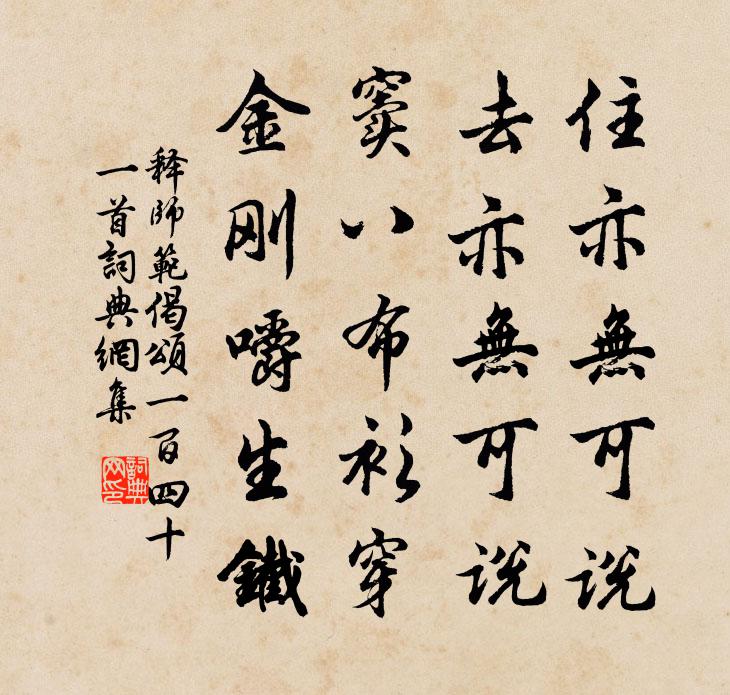 住亦無可説
去亦無可説
窦八布衫穿
金刚嚼生鐵
释師範偈頌一百四十
一首詞典網集
詞典网印